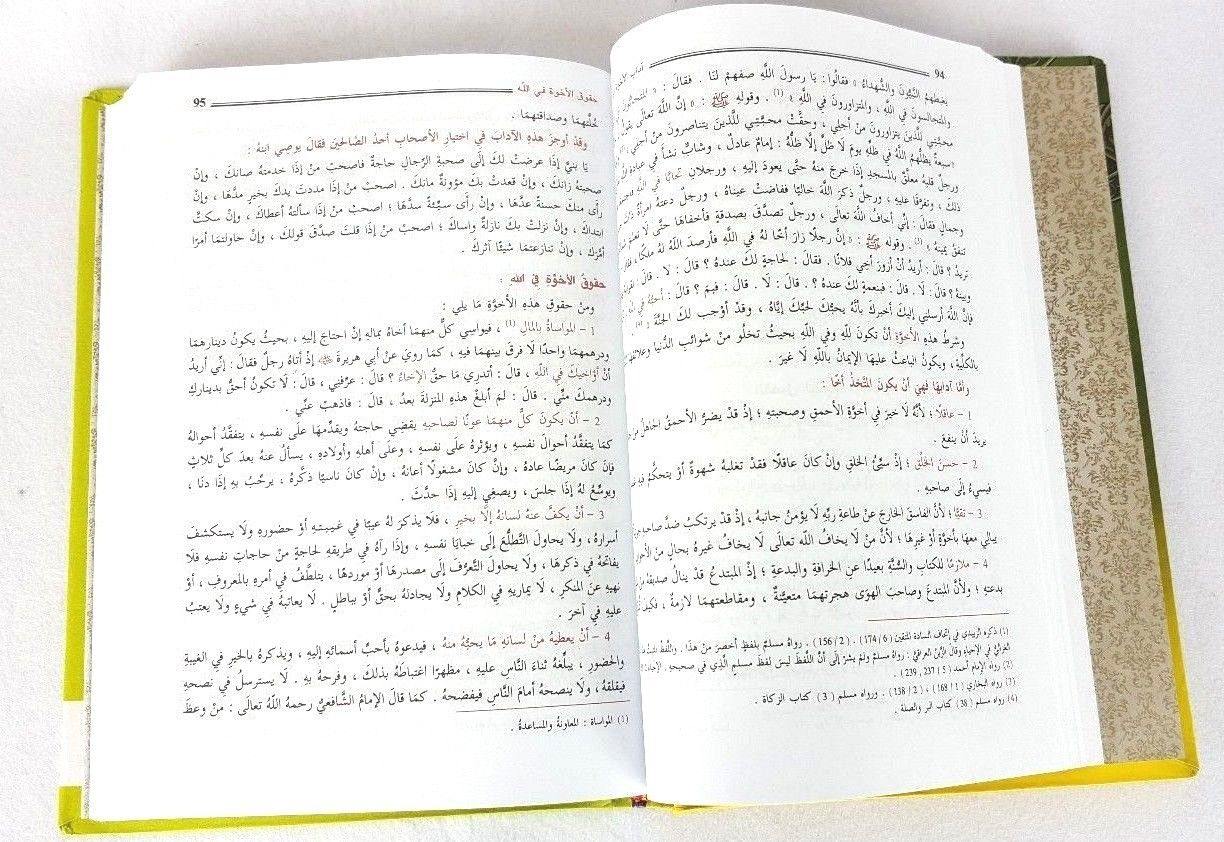 94
آداب
يغبطهمُ النَّبيُّونَ والشُّهداءُ » فقالُوا : يَا رسولَ اللَّهِ صفهمْ لنَا . فقالَ : « المتحابُّونَ
والمتجالسونَ في اللَّهِ ، والمتزاورونَ في اللَّهِ » (1) . وقولهِ ﷺ : « إنَّ اللَّهَ تعالَى يقولُ
محبَّتي للَّذينَ يتزاورونَ منْ أجلِي ، وحقَّتْ محبَّتي للَّذينَ يتناصرونَ منْ أجلِي
« سبعةٌ يظلُّهمُ اللَّهُ في ظلِّهِ يومَ لَا ظلَّ إلَّا ظلُّهُ : إمامٌ عادلٌ ، وشابٌّ نشأَ في عبادةِ اللَّهِ
ورجلٌ قلبهُ معلَّقٌ بالمسجدِ إذَا خرجَ منهُ حتَّى يعودَ إليهِ ، ورجلانِ تحابَّا في اللَّهِ
ذلكَ ، وتفرَّقَا عليهِ ، ورجلٌ ذكرَ اللَّهَ خاليًا ففاضتْ عيناهُ ، ورجلٌ دعتهُ امرأةٌ ذاتُ
وجمالٍ فقالَ : إنِّي أخافُ اللَّهَ تعالَى ، ورجلٌ تصدَّقَ بصدقةٍ فأخفاهَا حتَّى لَا تعلمَ
تنفقُ يمينهُ » (3) . وقولهِ ﷺ : « إنَّ رجلًا زارَ أخًا لهُ في اللَّهِ فأرصدَ اللَّهُ لهُ ملكًا ، فقالَ
تريدُ ؟ قالَ : أريدُ أنْ أزورَ أخِي فلانًا . فقالَ : لحاجةٍ لكَ عندهُ ؟ قالَ : لَا . قالَ : لقرابةٍ
وبينهُ ؟ قالَ : لَا . قالَ : فبنعمةٍ لكَ عندهُ ؟ قالَ : لَا . قالَ : فبمَ ؟ قالَ : أحبُّهُ في اللَّهِ
فإنَّ اللَّهَ أرسلنِي إليكَ أخبركَ بأنَّهُ يحبُّكَ لحبِّكَ إيَّاهُ ، وقدْ أوجبَ لكَ الجنَّةَ » (4)
وشرطُ هذهِ الأخوَّةِ أنْ تكونَ للَّهِ وفي اللَّهِ بحيثُ تخلُو منْ شوائبِ الدُّنيَا وعلائقهَا
بالكلِّيَّةِ ، ويكونَ الباعثُ عليهَا الإيمانُ باللَّهِ لَا غيرَ .
وأمَّا آدابهَا فهيَ أنْ يكونَ المتَّخذُ أخًا :
1 - عاقلًا ؛ لأنَّهُ لَا خيرَ في أخوَّةِ الأحمقِ وصحبتهِ ؛ إذْ قدْ يضرُّ الأحمقُ الجاهلُ منْ حيثُ
يريدُ أنْ ينفعَ .
2 - حسنَ الخلقِ ؛ إذْ سيِّئُ الخلقِ وإنْ كانَ عاقلًا فقدْ تغلبهُ شهوةٌ أوْ يتحكَّمُ فيهِ
فيسيءُ إلَى صاحبهِ .
3 - تقيًّا ؛ لأنَّ الفاسقَ الخارجَ عنْ طاعةِ ربِّهِ لَا يؤمنُ جانبهُ ، إذْ قدْ يرتكبُ ضدَّ صاحبهِ
يبالِي معهَا بأخوَّةٍ أوْ غيرهَا ؛ لأنَّ منْ لَا يخافُ اللَّه تعالَى لَا يخافُ غيرهُ بحالٍ منَ الأحوالِ
4 - ملازمًا للكتابِ والسُّنَّةِ بعيدًا عنِ الخرافةِ والبدعةِ ؛ إذِ المبتدعُ قدْ ينالُ صديقهُ منْ
بدعتهِ ؛ ولأنَّ المبتدعَ وصاحبَ الهوَى هجرتهمَا متعيِّنةٌ ، ومقاطعتهمَا لازمةٌ ، فكيفَ
(1) ذكره الزبيدي في إتحاف السادة المتقين ( 6 / 174 ) . ( 2 / 156 ) . رواهُ مسلمٌ بلفظٍ أخصرَ منْ هذَا . واللَّفظُ
العراقيُّ في الإحياءِ وقالَ الزَّينُ العراقيُّ : رواهُ مسلمٌ ولمْ يشرْ إلَى أنَّ اللَّفظَ ليسَ لفظَ مسلمٍ الَّذِي في صحيحهِ .
(2) رواه الإمام أحمد ( 5 / 237 ، 239 ) .
(3) رواه البخاري ( 1 / 168 ) ، ( 2 / 138 ) . ورواه مسلم ( 3 ) كتاب الزكاة .
(4) رواه مسلم ( 38 ) كتاب البر والصلة .
حقوق الأخوة في الله
95
خلَّتهمَا وصداقتهمَا .
وقدْ أوجزَ هذهِ الآدابَ في اختيارِ الأصحابِ أحدُ الصَّالحينَ فقالَ يوصِي ابنهُ :
يَا بنيَّ إذَا عرضتْ لكَ إلَى صحبةِ الرِّجالِ حاجةٌ فاصحبْ منْ إذَا خدمتهُ صانكَ ، وإنْ
صحبتهُ زانكَ ، وإنْ قعدتْ بكَ مؤونةٌ مانكَ . اصحبْ منْ إذَا مددتَ يدكَ بخيرٍ مدَّهَا ، وإنْ
رأَى منكَ حسنةً عدَّهَا ، وإنْ رأَى سيِّئةً سدَّهَا ؛ اصحبْ منْ إذَا سألتهُ أعطاكَ ، وإنْ سكتَّ
ابتداكَ ، وإنْ نزلتْ بكَ نازلةٌ واساكَ ؛ اصحبْ منْ إذَا قلتَ صدَّقَ قولكَ ، وإنْ حاولتمَا أمرًا
أمَّركَ ، وإنْ تنازعتمَا شيئًا آثركَ .
حقوقُ الأخوَّةِ في اللهِ :
ومنْ حقوقِ هذهِ الأخوَّةِ مَا يلي :
1 - المواساةُ بالمالِ (1) ، فيواسِي كلٌّ منهمَا أخاهُ بمالهِ إنْ احتاجَ إليهِ ، بحيثُ يكونُ دينارهمَا
ودرهمهمَا واحدًا لَا فرقَ بينهمَا فيهِ ، كمَا رويَ عنْ أبي هريرةَ ﷺ إذْ أتاهُ رجلٌ فقالَ : إنِّي أريدُ
أنْ أؤاخيكَ في اللَّهِ ، قالَ : أتدرِي مَا حقُّ الإخاءِ ؟ قالَ : عرِّفنِي ، قالَ : لَا تكونُ أحقَّ بديناركَ
ودرهمكَ منِّي . قالَ : لمْ أبلغْ هذهِ المنزلةَ بعدُ ، قالَ : فاذهبْ عنِّي .
2 - أنْ يكونَ كلٌّ منهمَا عونًا لصاحبهِ يقضِي حاجتهُ ويقدِّمهَا علَى نفسهِ ، يتفقَّدُ أحوالهُ
كمَا يتفقَّدُ أحوالَ نفسهِ ، ويؤثرهُ علَى نفسهِ ، وعلَى أهلهِ وأولادهِ ، يسألُ عنهُ بعدَ كلِّ ثلاثٍ
فإنْ كانَ مريضًا عادهُ ، وإنْ كانَ مشغولًا أعانهُ ، وإنْ كانَ ناسيًا ذكَّرهُ ، يرحِّبُ بهِ إذَا دنَا ،
ويوسِّعُ لهُ إذَا جلسَ ، ويصغِي إليهِ إذَا حدَّثَ .
3 - أنْ يكفَّ عنهُ لسانهُ إلَّا بخيرٍ ، فلَا يذكرَ لهُ عيبًا في غيبتهِ أوْ حضورهِ ولَا يستكشفَ
أسرارهُ ، ولَا يحاولَ التَّطلُّعَ إلَى خبايَا نفسهِ ، وإذَا رآهُ في طريقهِ لحاجةٍ منْ حاجاتِ نفسهِ فلَا
يفاتحهُ في ذكرهَا ، ولَا يحاولُ التَّعرُّفَ إلَى مصدرهَا أوْ موردهَا ، يتلطَّفُ في أمرهِ بالمعروفِ ، أوْ
نهيهِ عنِ المنكرِ ، لَا يماريهِ في الكلامِ ولَا يجادلهُ بحقٍّ أوْ بباطلٍ . لَا يعاتبهُ في شيءٍ ولَا يعتبُ
عليهِ في آخرَ .
4 - أنْ يعطيهُ منْ لسانهِ مَا يحبُّهُ منهُ ، فيدعوهُ بأحبِّ أسمائهِ إليهِ ، ويذكرهُ بالخيرِ في الغيبةِ
والحضورِ ، يبلِّغهُ ثناءَ النَّاسِ عليهِ ، مظهرًا اغتباطهُ بذلكَ ، وفرحهُ بهِ . لَا يسترسلُ في نصحهِ
فيقلقهُ ، ولَا ينصحهُ أمامَ النَّاسِ فيفضحهُ . كمَا قالَ الإمامُ الشَّافعيُّ رحمهُ اللَّهُ تعالَى : منْ وعظَ
(1) المواساة : المعاونةُ والمساعدةُ .